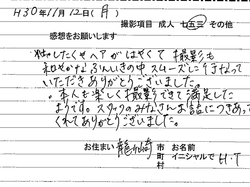 H30年11月12日(月)
撮影項目 成人 七五三 その他
感想をお願いします
したくヘアがはやくて 撮影も
和やかなふんいきの中 スムーズに すすんで
いただき ありがとうございました。
本人も楽しく撮影できて満足した
ようです。スタッフのみなさんお話につきあって
くれてありがとうございました。
お住まい 龍ヶ崎 市 お名前
町
村 イニシャルで H・T